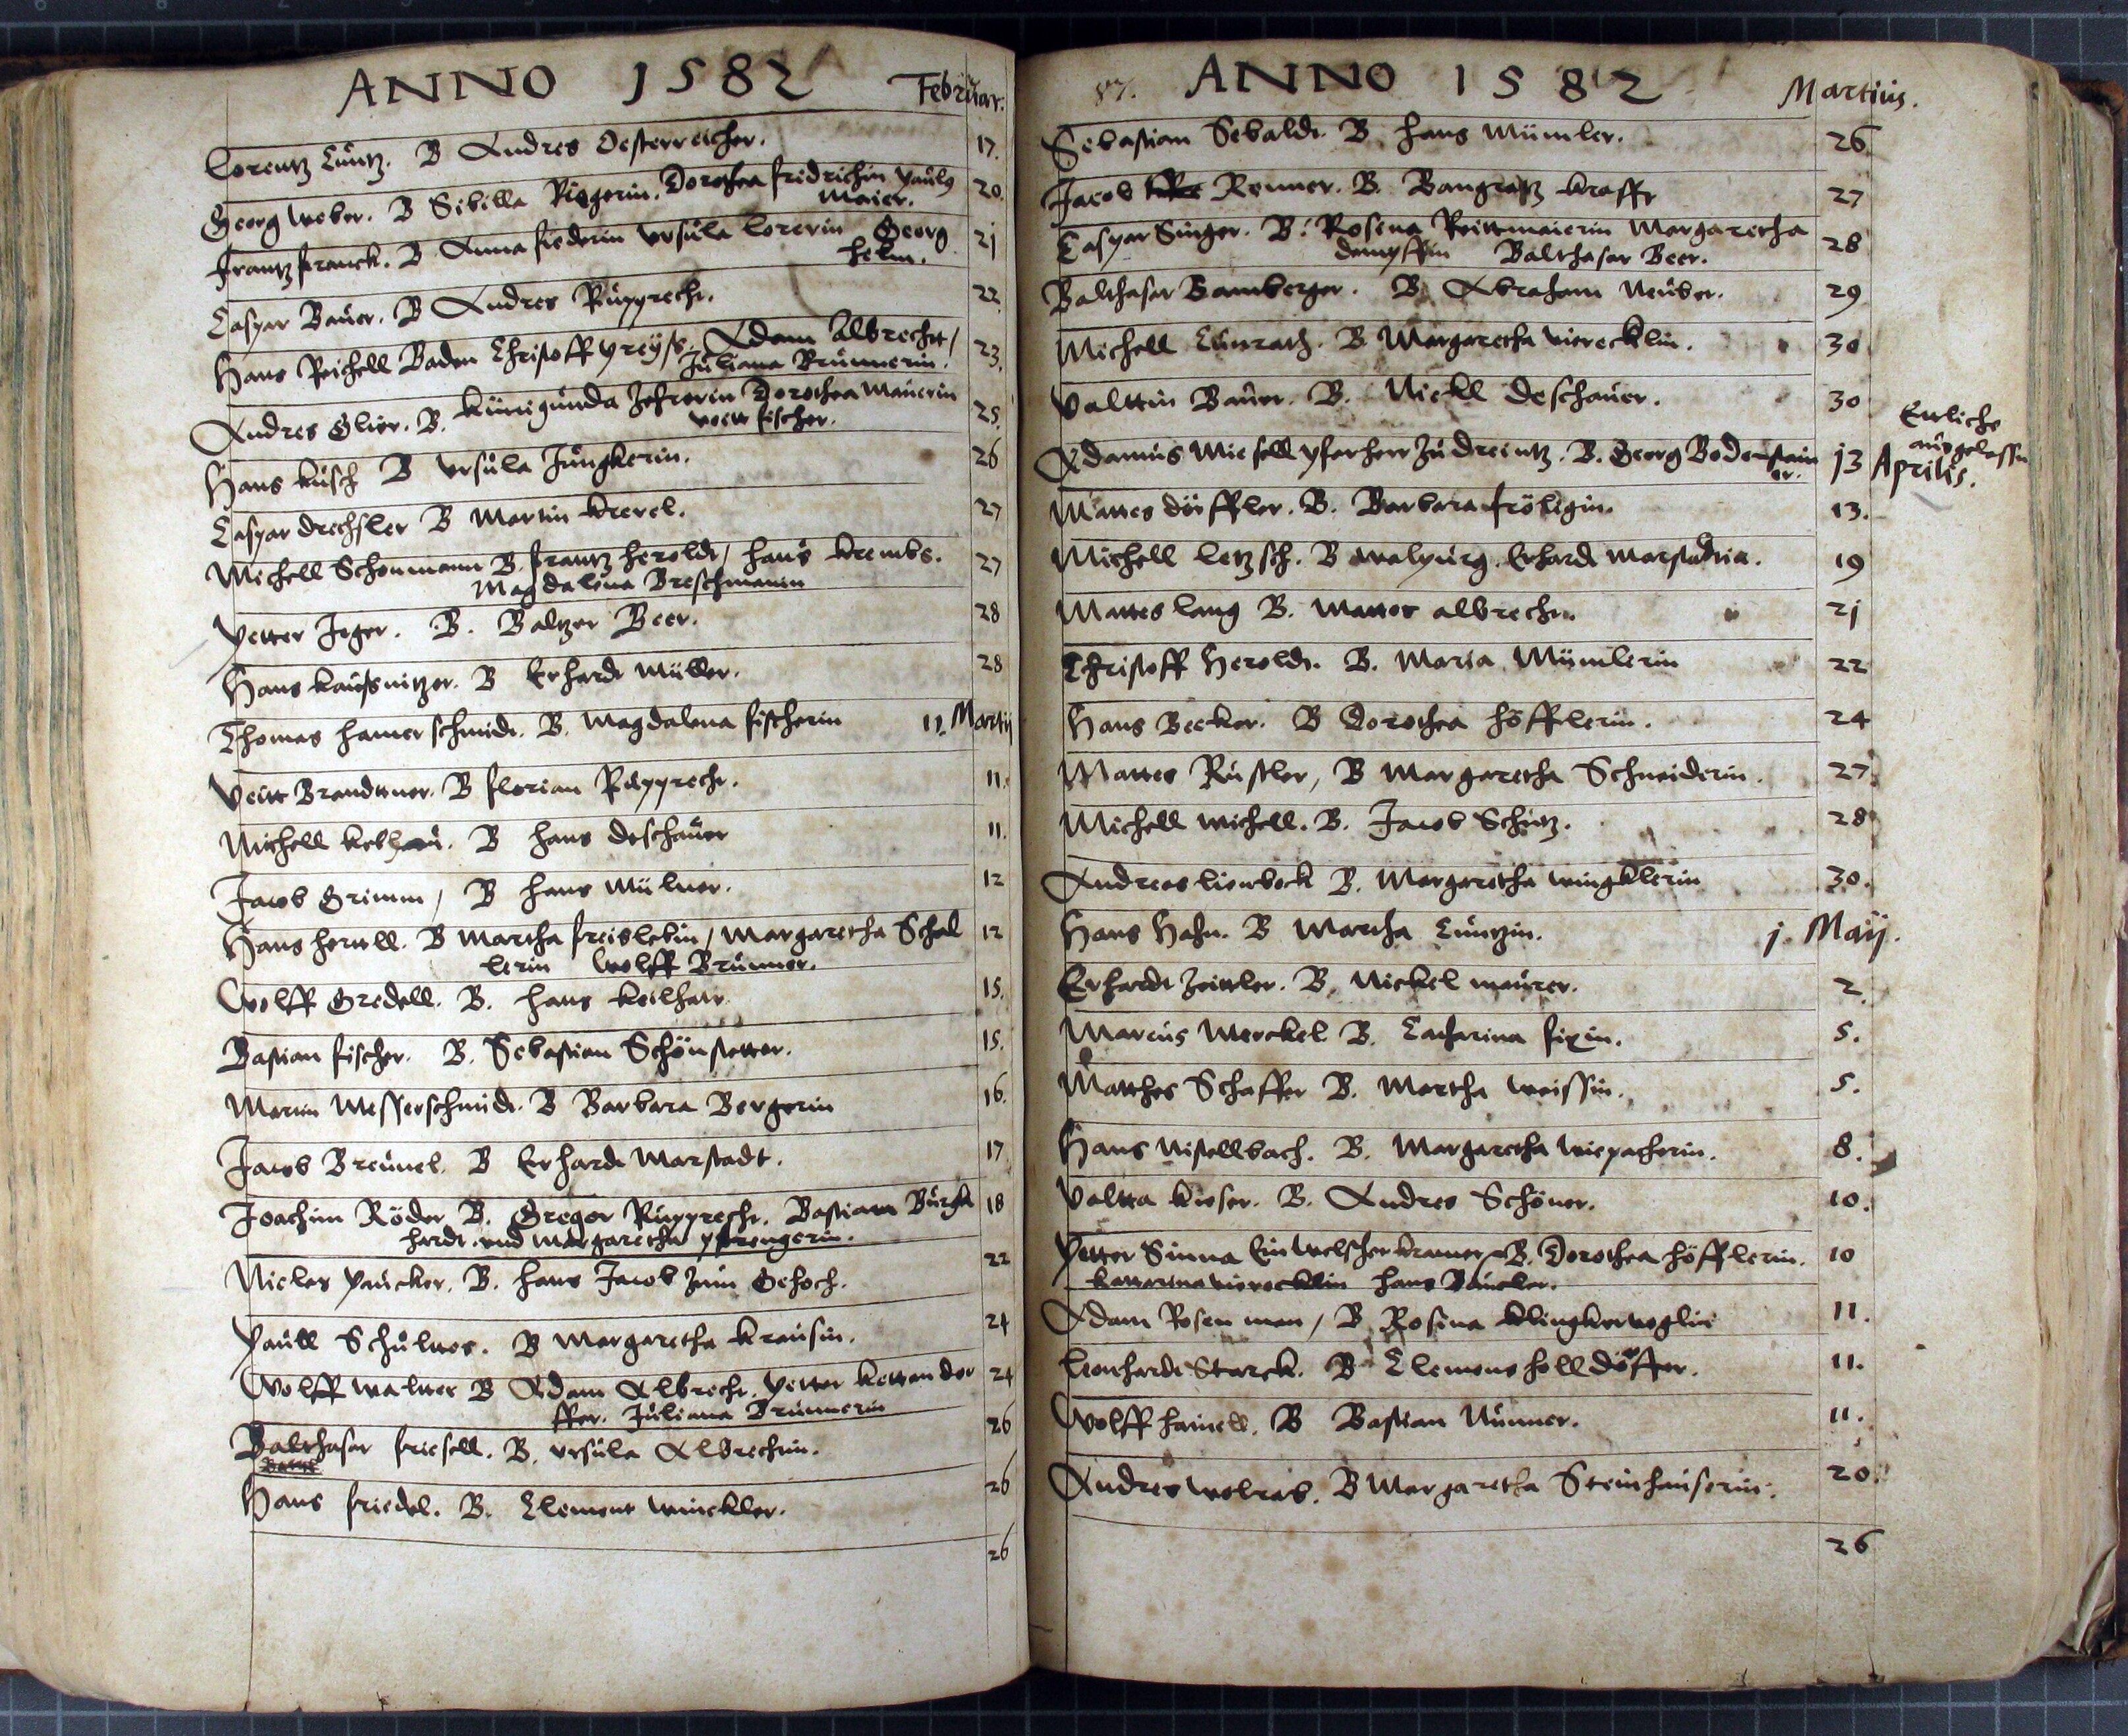 ANNO 1582 Februar.
Lorentz Cuntz. B Andres Oesterreicher. 17.
Georg Weber. B Sibilla Riegerin. Dorothea Fridrichin Paulus 20.
Maier.
Frantz Franck. B Anna Fiederin Ursula Lorerin Georg 21
Helm.
Caspar Bauer. B Andres Rupprecht. 22
Hans Reichell Baden Christoff Preyss. Adam Albrecht / 23.
Juliana Brunnerin.
Andres Glier. B. Künigunda Dorothea Maurerin 25.
Veitt Fischer.
Hans Kusch B Ursula Jungkerin. 26
Caspar Drechsler B Martin Krerel. 27
Michell Schonmann B. Frantz Heroldt / Hans Krembs. 27
Magdalena Breschmanin
Petter Jeger. B. Baltzer Beer. 28
Hans Kaussnitzer. B Erhardt Müller. 28
Thomas Hamerschmidt. B. Magdalena Fischerin 11. Martij
Veitt Brandtner. B Florian Rupprecht. 11.
Michell B Hans Deschauer 11.
Jacob Grimm / B Hans Mülner. 12
Hans Hertell. B Martha Freislebin / Margaretha Schal 12
lerin Wolff Brunner.
Wolff Gredell. B. Hans Keilhaw. 15.
Bastian Fischer. B. Sebastian Schönstetter. 15.
Martin Messerschmidt. B Barbara Bergerin 16.
Jacob Breunel. B Erhardt Marstadt. 17
Joachim Röder B. Gregor Rupprecht. Bastian Burck 18
hardt. und Margaretha Pfrengerin.
Niclas Paucker. B. Hans Jacob zum Gehoch. 22
Paull Schultes. B Margaretha Krausin. 24
Wolff Walter B Adam Albrecht. Petter Kettendor 24
ffer. Juliana Brunnerin
Balthasar Friesell. B. Ursula Albrechtin. 26
Hans Friedel. B. Clement Winckler. 26
26
87. ANNO 1582 Martius.
Sebastian Sebaldt. B. Hans Mümler. 26
Jacob Renner. B. Bangratz Krafft 27
Caspar Singer. B. Rosena Reittmaierin Margaretha 28
Dempffin Balthasar Beer.
Balthasar Bamberger. B. Abraham Neuber. 29
Michell Cunrath. B. Margaretha Vierecklin. 30
Valttin Bauer. B. Nickl Deschauer. 30
Etliche
ausgelassn
Adamus Miesell Pfarherr zu Dreintz. B. Georg Bodenstain 13 Aprilis.
er.
Mattes Döffler. B. Barbara Fröligin. 13.
Michell Letzsch. B Walpurg. Erhardt Marstadtin. 19
Mattes Lang B. Mattes Albrecht. 21
Christoff Heroldt. B. Maria Mümlerin 22
Hans Becker. B Dorothea Höfflerin. 24
Mattes Rustler, B Margaretha Schneiderin. 27
Michell Michell. B. Jacob Schütz. 28
Andreas Lienbeck B. Margaretha Wingklerin 30.
Hans Hahn. B Martha Cuntzin. j. Maij.
Erhardt Zeittler. B. Nickel Maurer. 2.
Marcus Merckel B. Catharina Fixin. 5.
Matthes Schaffer B. Martha Weissin. 5.
Hans Nistellbach. B. Margaretha Wiepacherin. 8.
Valtta Kieser. B. Andres Schöner. 10.
Petter Sinna Ein Welscher Kramer B. Dorothea Höfflerin. 10
Kattarina Vierecklin Hans Bauckler.
Adam Rosenman / B Rosina Klingkervoglin 11.
Lienhardt Starck. B Clemens Holldöffer. 11.
Wolff Hainell. B Bastian Nunner. 11.
Andres Wolrab. B Margaretha Steinhauserin. 20.
26